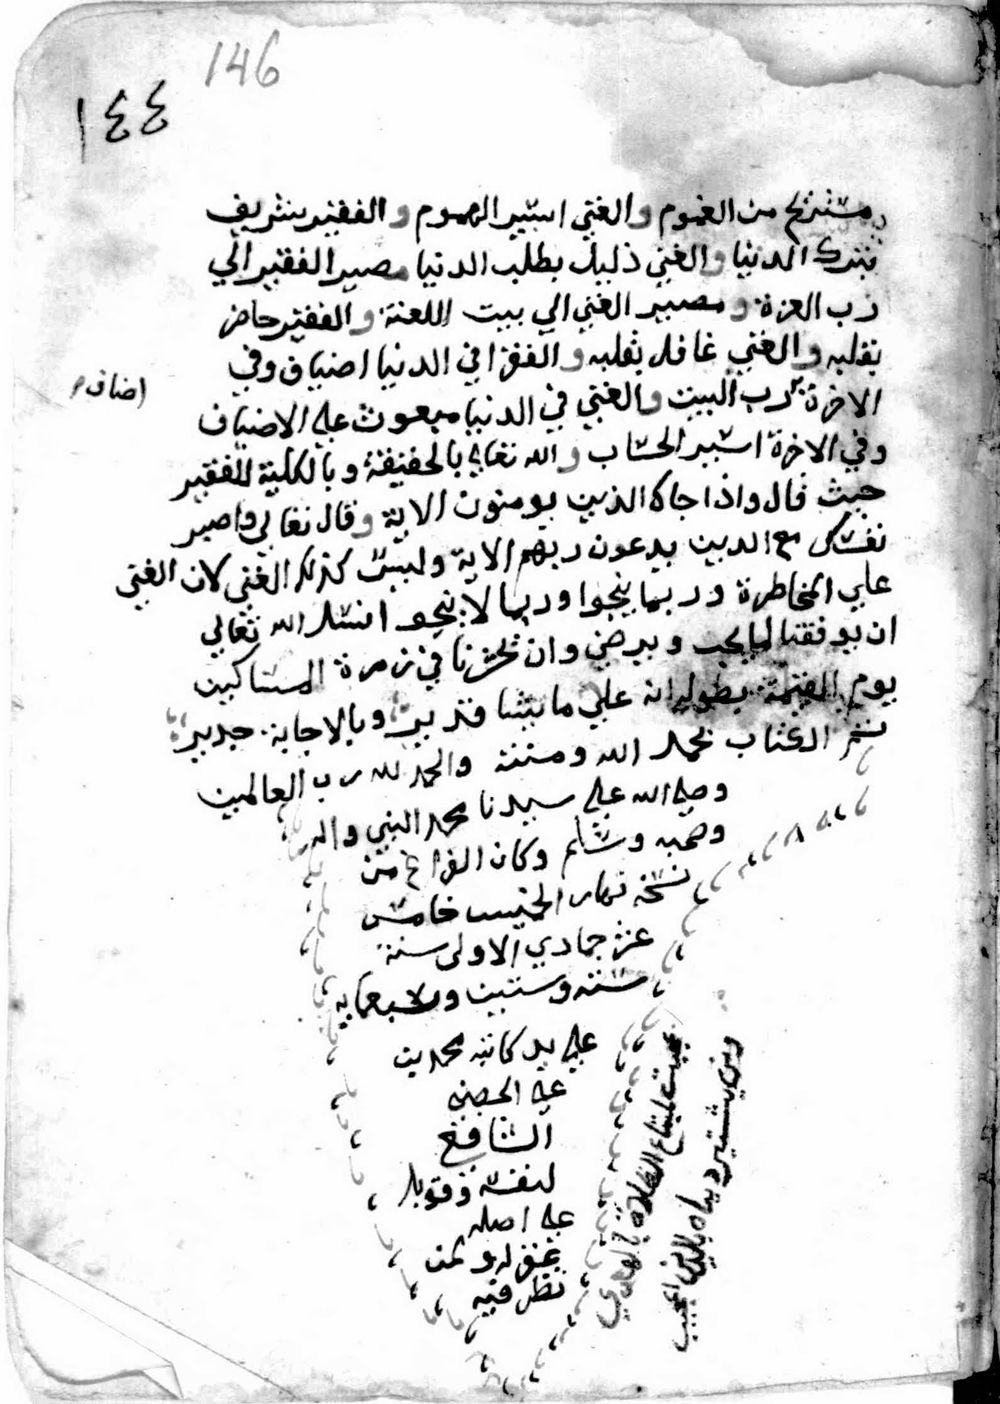 146
١٤٤
مستريح من الغموم والغني اسير الهموم والفقير شريف
بترك الدنيا والغني ذليل بطلب الدنيا مصير الفقير الي
رب العزة ومصير الغني الي بيت اللعنة والفقير حاضر
بقلبه والغني غافل بقلبه والفقرا في الدنيا اضياف وفي
اضاف
الاخرة رب البيت والغني في الدنيا مبعوث علي الاضياف
وفي الاخرة اسير الحساب والله تعالي بالحقيقة وبالكلية للفقير
حيث قال واذا جاك الذين يومنون الاية وقال تعالي واصبر
نفسك مع الذين يدعون ربهم الاية وليس كذلك الغني لان الغني
علي المخاطرة وربما ينجوا وربما لا ينجو انسال الله تعالي
ان يوفقنا لما يحب ويرضي وان يحشرنا في زمرة المساكين
يوم القيمة بطوله انه علي ما يشا قدير وبالاجابة جدير
تم الكتاب بحمد الله ومننه والحمد لله رب العالمين
وصلي الله علي سيدنا محمد النبي واله
وصحبه وسلم وكان الفراغ من
نسخه نهار الخميس خامس
عشر جمادي الاولي سنة
ستة وستين وسبعمايه
علي يد كاتبه محمد بن
علي الحصني
الشافعي
لنفسه وقوبل
علي اصله
غفر له ولمن
نظر فيه